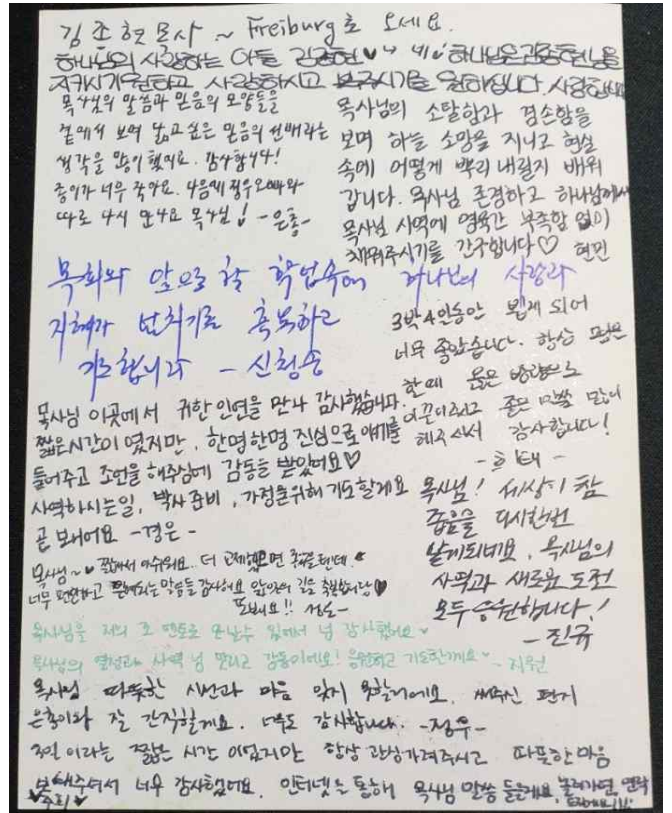 김종현 목사 ~ Freiburg로 오세요.
하나님의 사랑하는 아들 김종현♥ 네♥ 하나님은 김종현님을
지키시기 원하고 사랑하시고 원하십니다. 사랑합니다
목사님의 말씀과 믿음의 모양들을
곁에서 보며 닮고싶은 믿음의 선배라는
생각을 많이 했어요. 감사합니다!
종이가 너무 작아요. 다음에 정우오빠와
따로 다시 만나요 목사님! -은총-
목사님의 소탈함과 겸손함을
보며 하늘 소망을 지니고 현실
속에 어떻게 뿌리 내릴지 배워
갑니다. 목사님 존경하고 하나님께서
목사님 사역에 영육간 부족함 없이
채워주시기를 간구합니다♡ 현민
목회와 앞으로 할 학업속에 하나님의 사랑과
지혜가 넘치기를 축복하고
기도합니다 - 신청송
3박4일동안 뵙게 되어
너무 좋았습니다. 항상
한데 옳은 방향으로
이끌어주시고 좋은 말씀 많이
해주셔서 감사합니다!
-희태-
목사님 이곳에서 귀한 인연을 만나 감사했습니다.
짧은시간이였지만, 한명한명 진심으로 얘기를
들어주고 조언을 해주심에 감동을 받았어요♡
사역하시는일, 박사 준비, 가정을위해 기도할게요
곧 보내어요 -경은-
목사님! 세상이 참
좁음을 다시한번
알게되네요. 목사님의
사역과 새로운 도전
모두 응원합니다!
-진규
목사님~ 짧아서 아쉬워요.. 더 교제했으면 좋을텐데.
너무 편안하고 말씀들 감사해요 앞으로의 길을 축복합니당♥
또봬요!!
목사님을 저희 조 멘토로 만날수 있어서 넘 감사했어요
목사님의 열정과 사역 넘 멋지고 감동이에요! 응원하고 기도할께요 - 지원
목사님 따뜻한 시선과 마음 잊지 못할거에요. 써주신 편지
은총이와 잘 간직할게요. 너무도 감사합니다. -정우-
3일 이라는 짧은 시간 이었지만 항상 관심가져주시고 따뜻한마음
너무 감사했어요. 인터넷을 통해 목사님 말씀 들을게요. 놀러가면 연락
♥주희♥